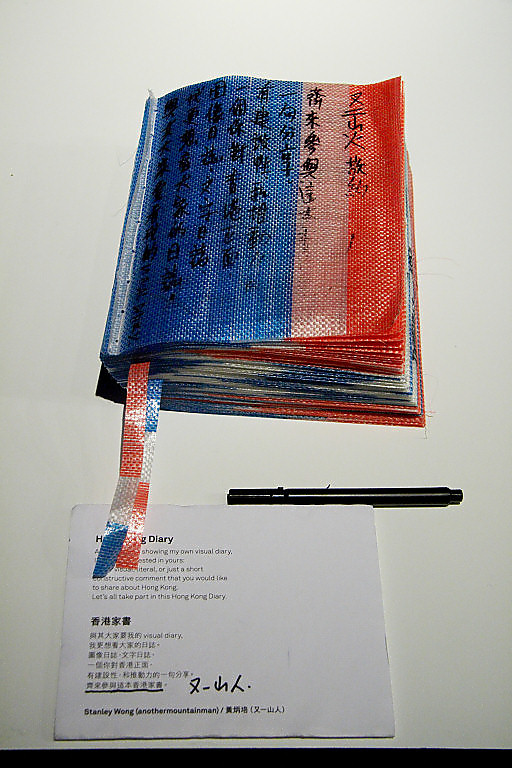 又一山人
齊來參與這
一句分享。
有建設性、和推動
一個你對香港正面
圖像日誌、文字日誌
我更想看大家的日誌。
Diary
showing my own visual diary,
in yours:
visual, literal, or just a short
constructive comment that you would like
to share about Hong Kong.
Let's all take part in this Hong Kong Diary.
香港家書
與其大家要我的 visual diary,
我更想看大家的日誌。
圖像日誌、文字日誌,
一個你對香港正面,
有建設性、和推動力的一句分享。
齊來參與這本香港家書。
又一山人.
Stanley Wong (anothermountainman) / 黃炳培 (又一山人)